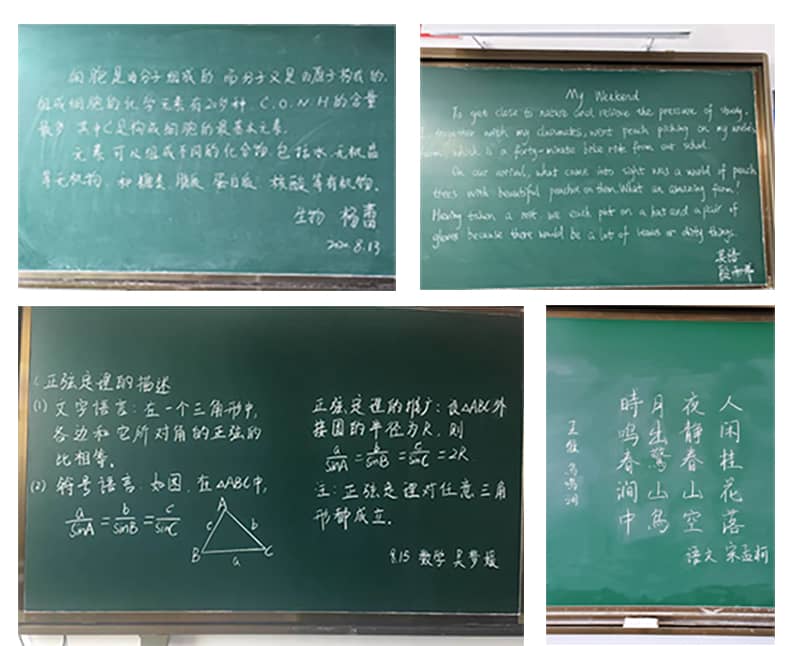 细胞是由分子组成的,而分子又是由原子构成的,
组成细胞的化学元素有20多种,C.O.N.H的含量
最多,其中C是构成细胞的最基本元素.
元素可以组成不同的化合物,包括水、无机盐
等无机物,和糖类、脂质、蛋白质、核酸等有机物.
生物 杨蕾
2020.8.13
My Weekend
To get close to nature and relieve the pressure of study,
I together with my classmates, went peach picking on my uncle's
farm, which is a forty-minute bike ride from our school.
On our arrival, what came into sight was a world of peach
trees with beautiful peaches on them. What an amazing farm!
Having taken a rest, we each put on a hat and a pair of
gloves because there would be a lot of leaves or dirty things.
英语
1.正弦定理的描述
(1) 文字语言:在一个三角形中,
各边和它所对角的正弦的
比相等。
(2) 符号语言:如图,在△ABC中,
a/sinA = b/sinB = c/sinC
A
c b
B a C
正弦定理的推广:设△ABC外
接圆的半径为R,则
a/sinA = b/sinB = c/sinC = 2R.
注:正弦定理对任意三角
形都成立。
8.15 数学 吴梦媛
人闲桂花落
夜静春山空
月出驚山鸟
時鸣春涧中
王维 鸟鸣涧
语文 宋孟柯